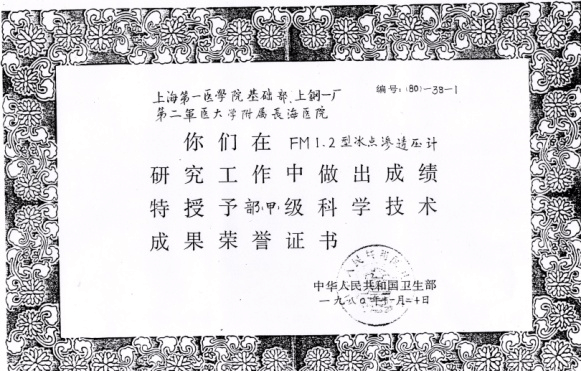 编号：(80)-38-1
上海第一医學院基础部、上鋼一厂
第二軍医大学附属長海医院
你们在 FM1.2型冰点渗透压计
研究工作中做出成绩
特授予部(甲)级科学技术
成果荣誉证书
中华人民共和国卫生部
一九八〇年十一月二十日